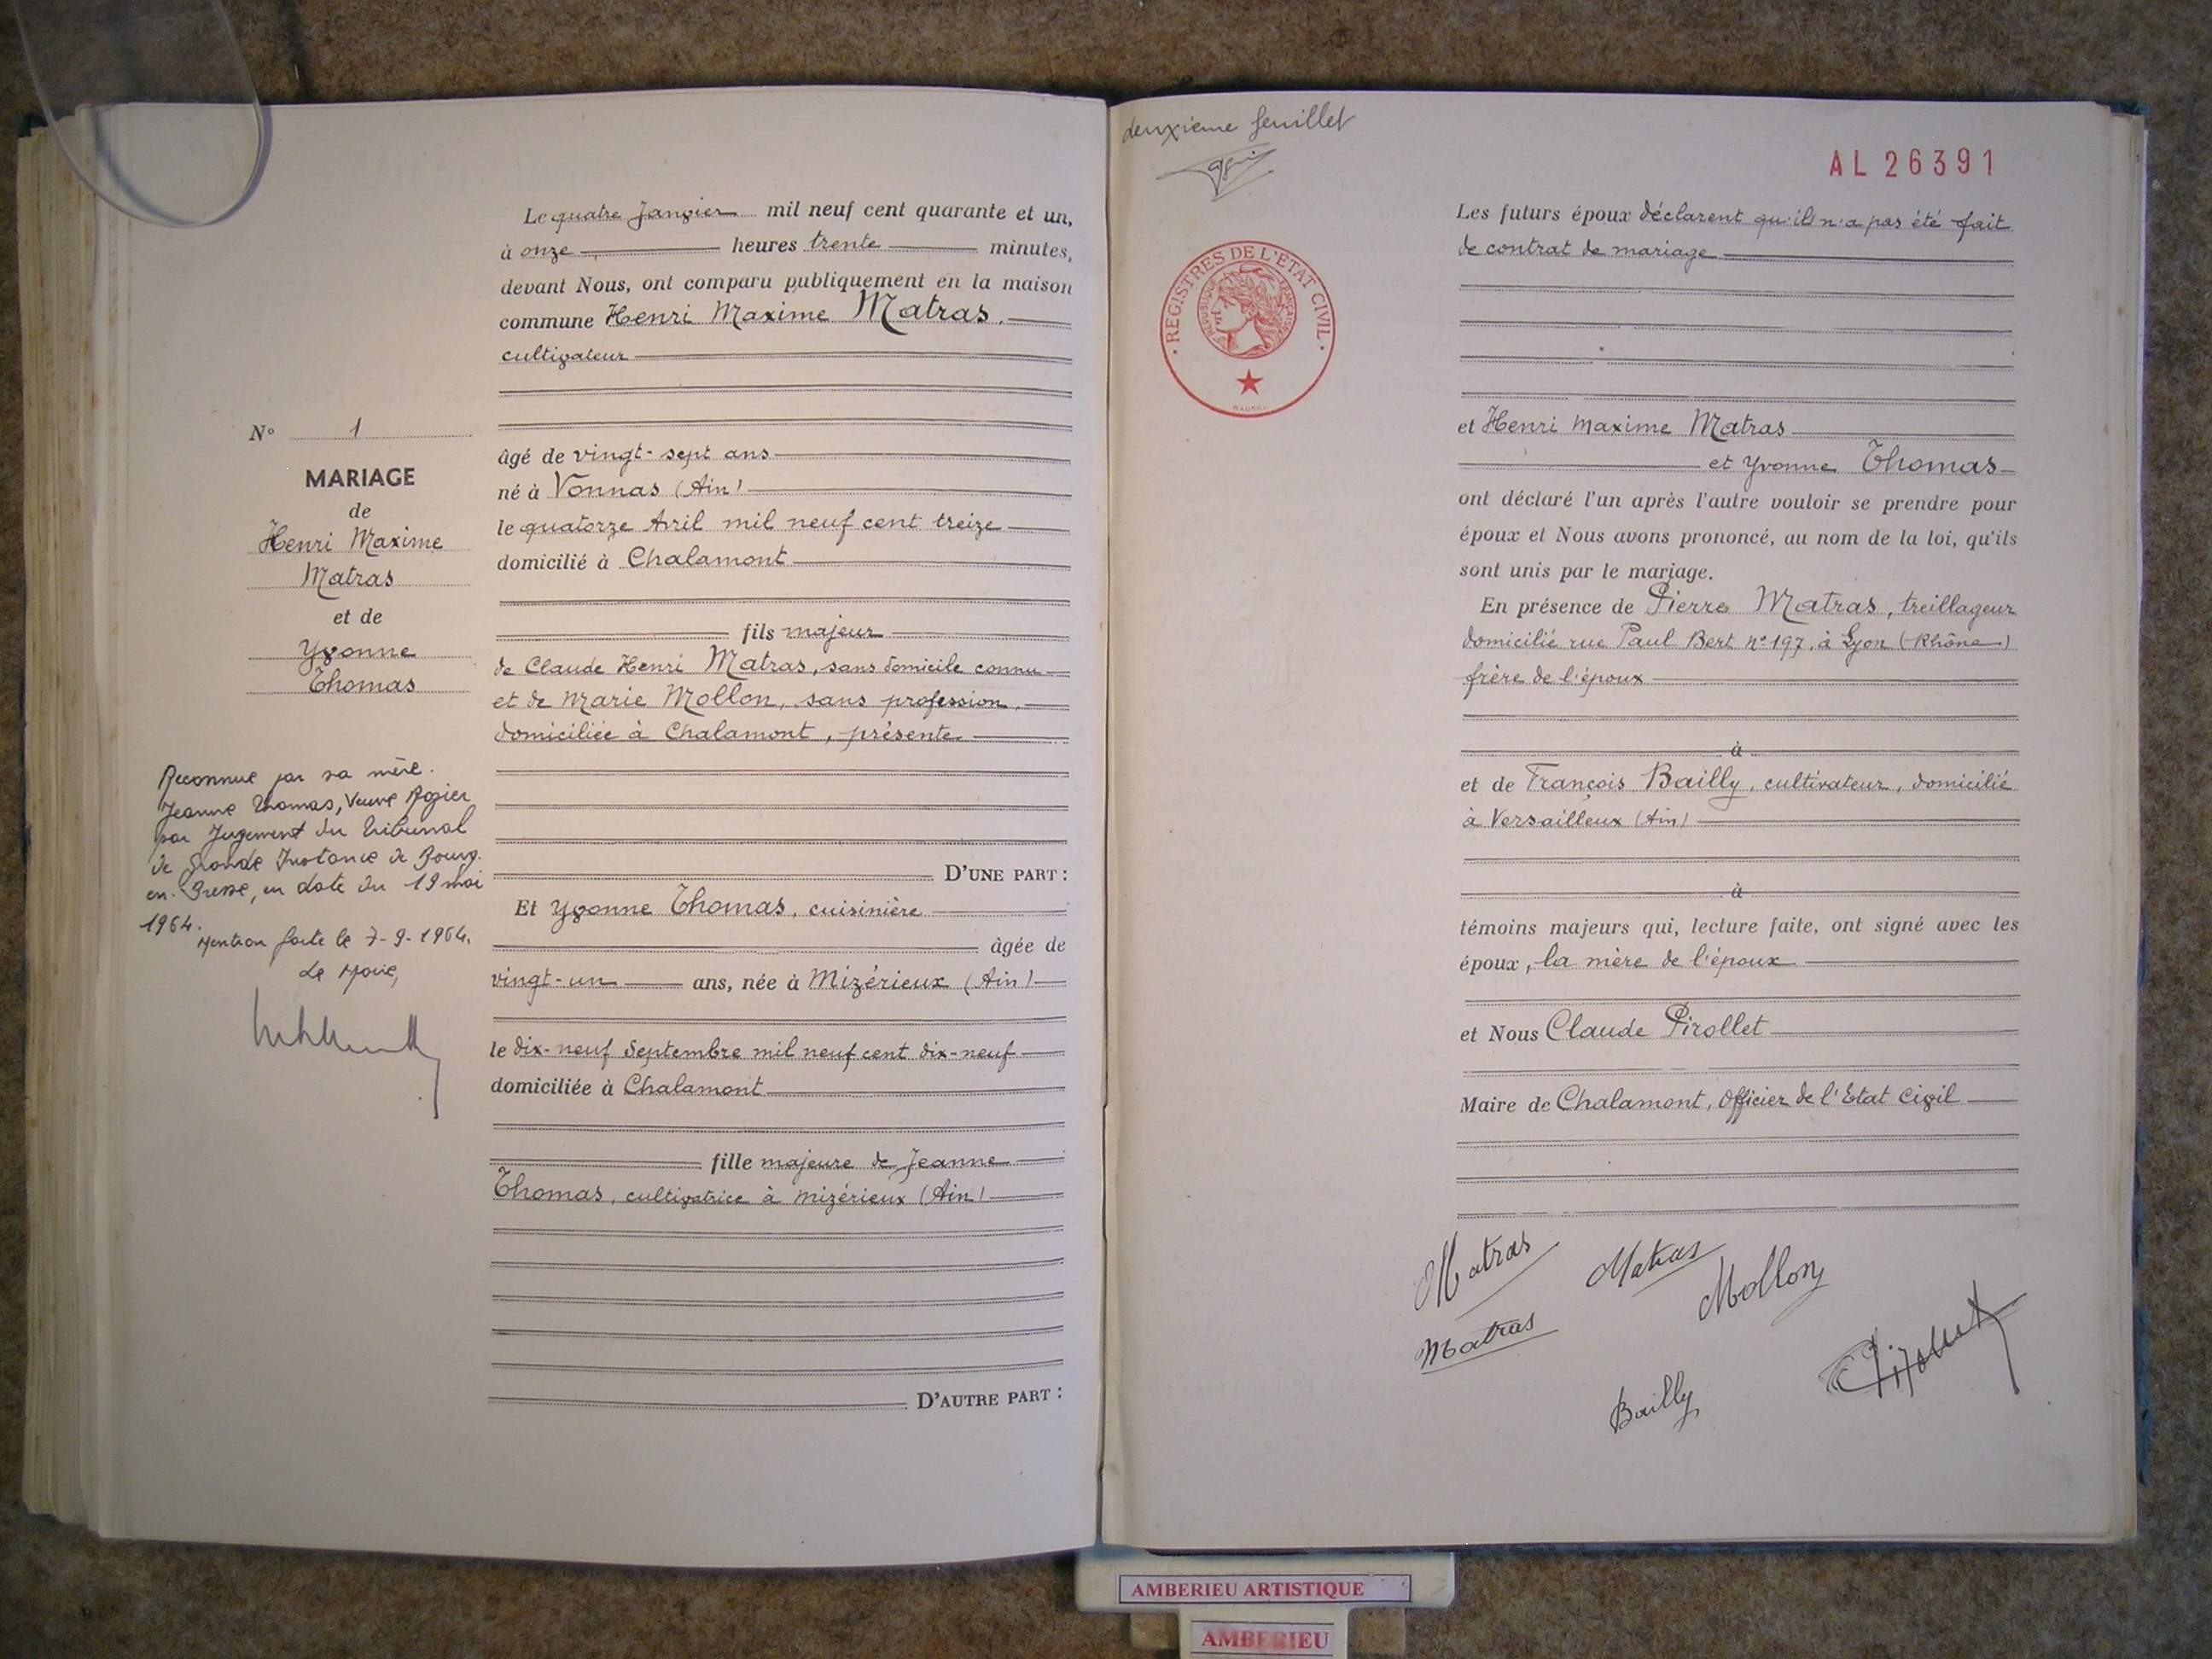 Le quatre Janvier mil neuf cent quarante et un,
à onze heures trente minutes,
devant Nous, ont comparu publiquement en la maison
commune Henri Maxime Matras,
cultivateur
âgé de vingt-sept ans
né à Vonnas (Ain)
le quatorze Avril mil neuf cent treize
domicilié à Chalamont
fils majeur
de Claude Henri Matras, sans domicile connu
et de Marie Mollon, sans profession,
domiciliée à Chalamont, présente
D'UNE PART :
Et Yvonne Thomas, cuisinière
âgée de
vingt-un ans, née à Mizérieux (Ain)
le dix-neuf Septembre mil neuf cent dix-neuf
domiciliée à Chalamont
fille majeure de Jeanne
Thomas, cultivatrice à Mizérieux (Ain)
D'AUTRE PART :
N° 1
MARIAGE
de
Henri Maxime
Matras
et de
Yvonne
Thomas
Reconnue par sa mère.
Jeanne Thomas, Veuve Rozier
par Jugement du Tribunal
de Grande Instance de Bourg-
en-Bresse, en date du 19 mai
1964.
Mention faite le 7-9-1964.
Le Maire,
deuxième feuillet
AL 26391
REGISTRES DE L'ÉTAT CIVIL
RÉPUBLIQUE FRANÇAISE
Les futurs époux déclarent qu'il n'a pas été fait
de contrat de mariage
et Henri Maxime Matras
et Yvonne Thomas
ont déclaré l'un après l'autre vouloir se prendre pour
époux et Nous avons prononcé, au nom de la loi, qu'ils
sont unis par le mariage.
En présence de Pierre Matras, treillageur
domicilié rue Paul Bert n° 197, à Lyon (Rhône)
frère de l'époux
à
et de François Bailly, cultivateur, domicilié
à Versailleux (Ain)
à
témoins majeurs qui, lecture faite, ont signé avec les
époux, la mère de l'époux
et Nous Claude Pirollet
Maire de Chalamont, Officier de l'Etat Civil
Matras
Matras
Mollon
Matras
Bailly
C Pirollet
AMBERIEU ARTISTIQUE
AMBERIEU